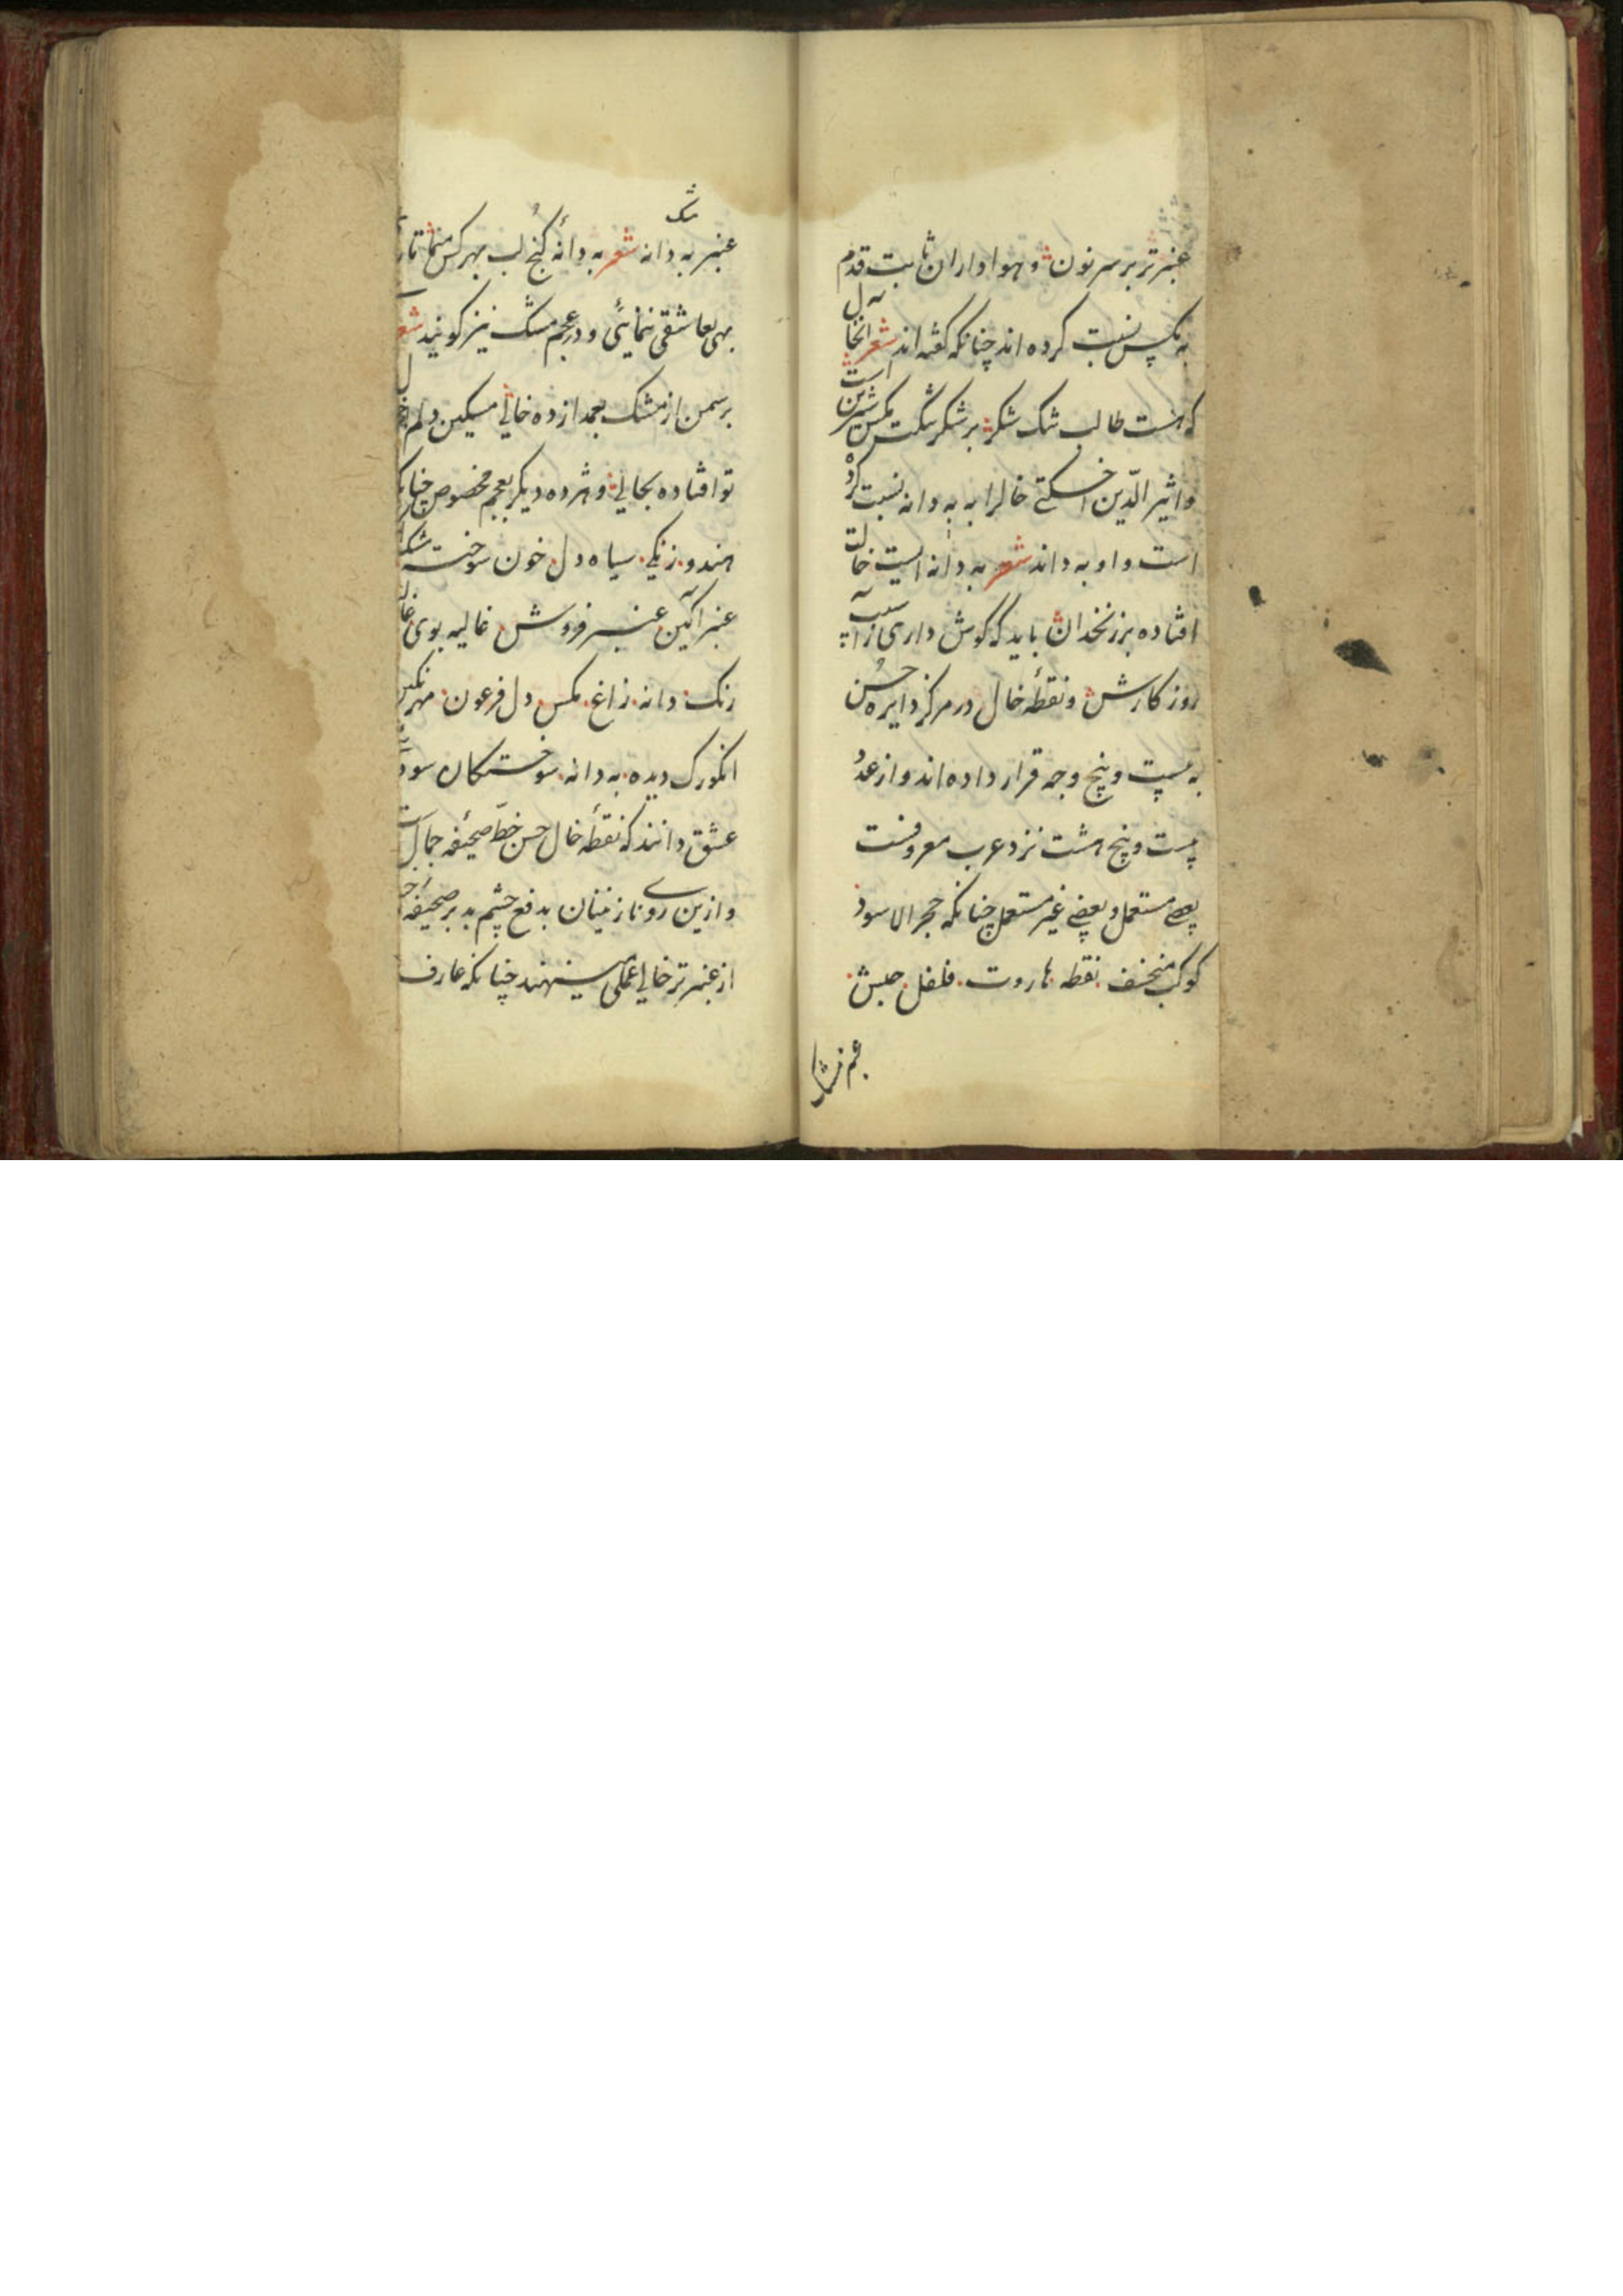 عنبر تر بر سر نون و هواداران ثابت قدم
به مکس نسبت کرده اند چنانکه گفته اند شعر انخال
که هست طالب تنک شکر بر شکر تنکت مکس شیرین است
و اثیر الدّین اخسکتی خالرا به به دانه نسبت کرده
است و او به داند شعر به دانه ایست خالت
افتاده بر زنخدان باید که گوش داری ز آسیب
روز کارش و نقطهٔ خال در مرکز دایره حُسن
به بیست و پنج وجه قرار داده اند و از عدد
بیست و پنج هشت نزد عرب معروفست
بعضی مستعمل و بعضی غیر مستعمل چنانکه حجر الاسود
کوکب منخسف نقطه هاروت فلفل حبش
عنبر به دانه شعر به دانهٔ کنج لب بهر کس منما تا
بهی بعاشقی ننمائی و در عجم مشک نیز کویند شعر
بر سمن از مشک بعمدا زده خالی مسکین دلم
تو افتاده بحالی و شرده دیکر بعجم مخصوص چنانکه
هندو زنکی سیاه دل خون سوخته
عنبر آکین عنبر فروش غالیه بوی
رنک دانه زاغ مکس دل فرعون مهر نکین
انکورک دیده به دانه سوختکان
عشق دانند که نقطهٔ خال حسن خطّ صحیفه جمالست
و ازین روی نازنینان بدفع چشم بد بر صحیفه
از عنبر تر خالی عملی مینهند چنانکه عارف